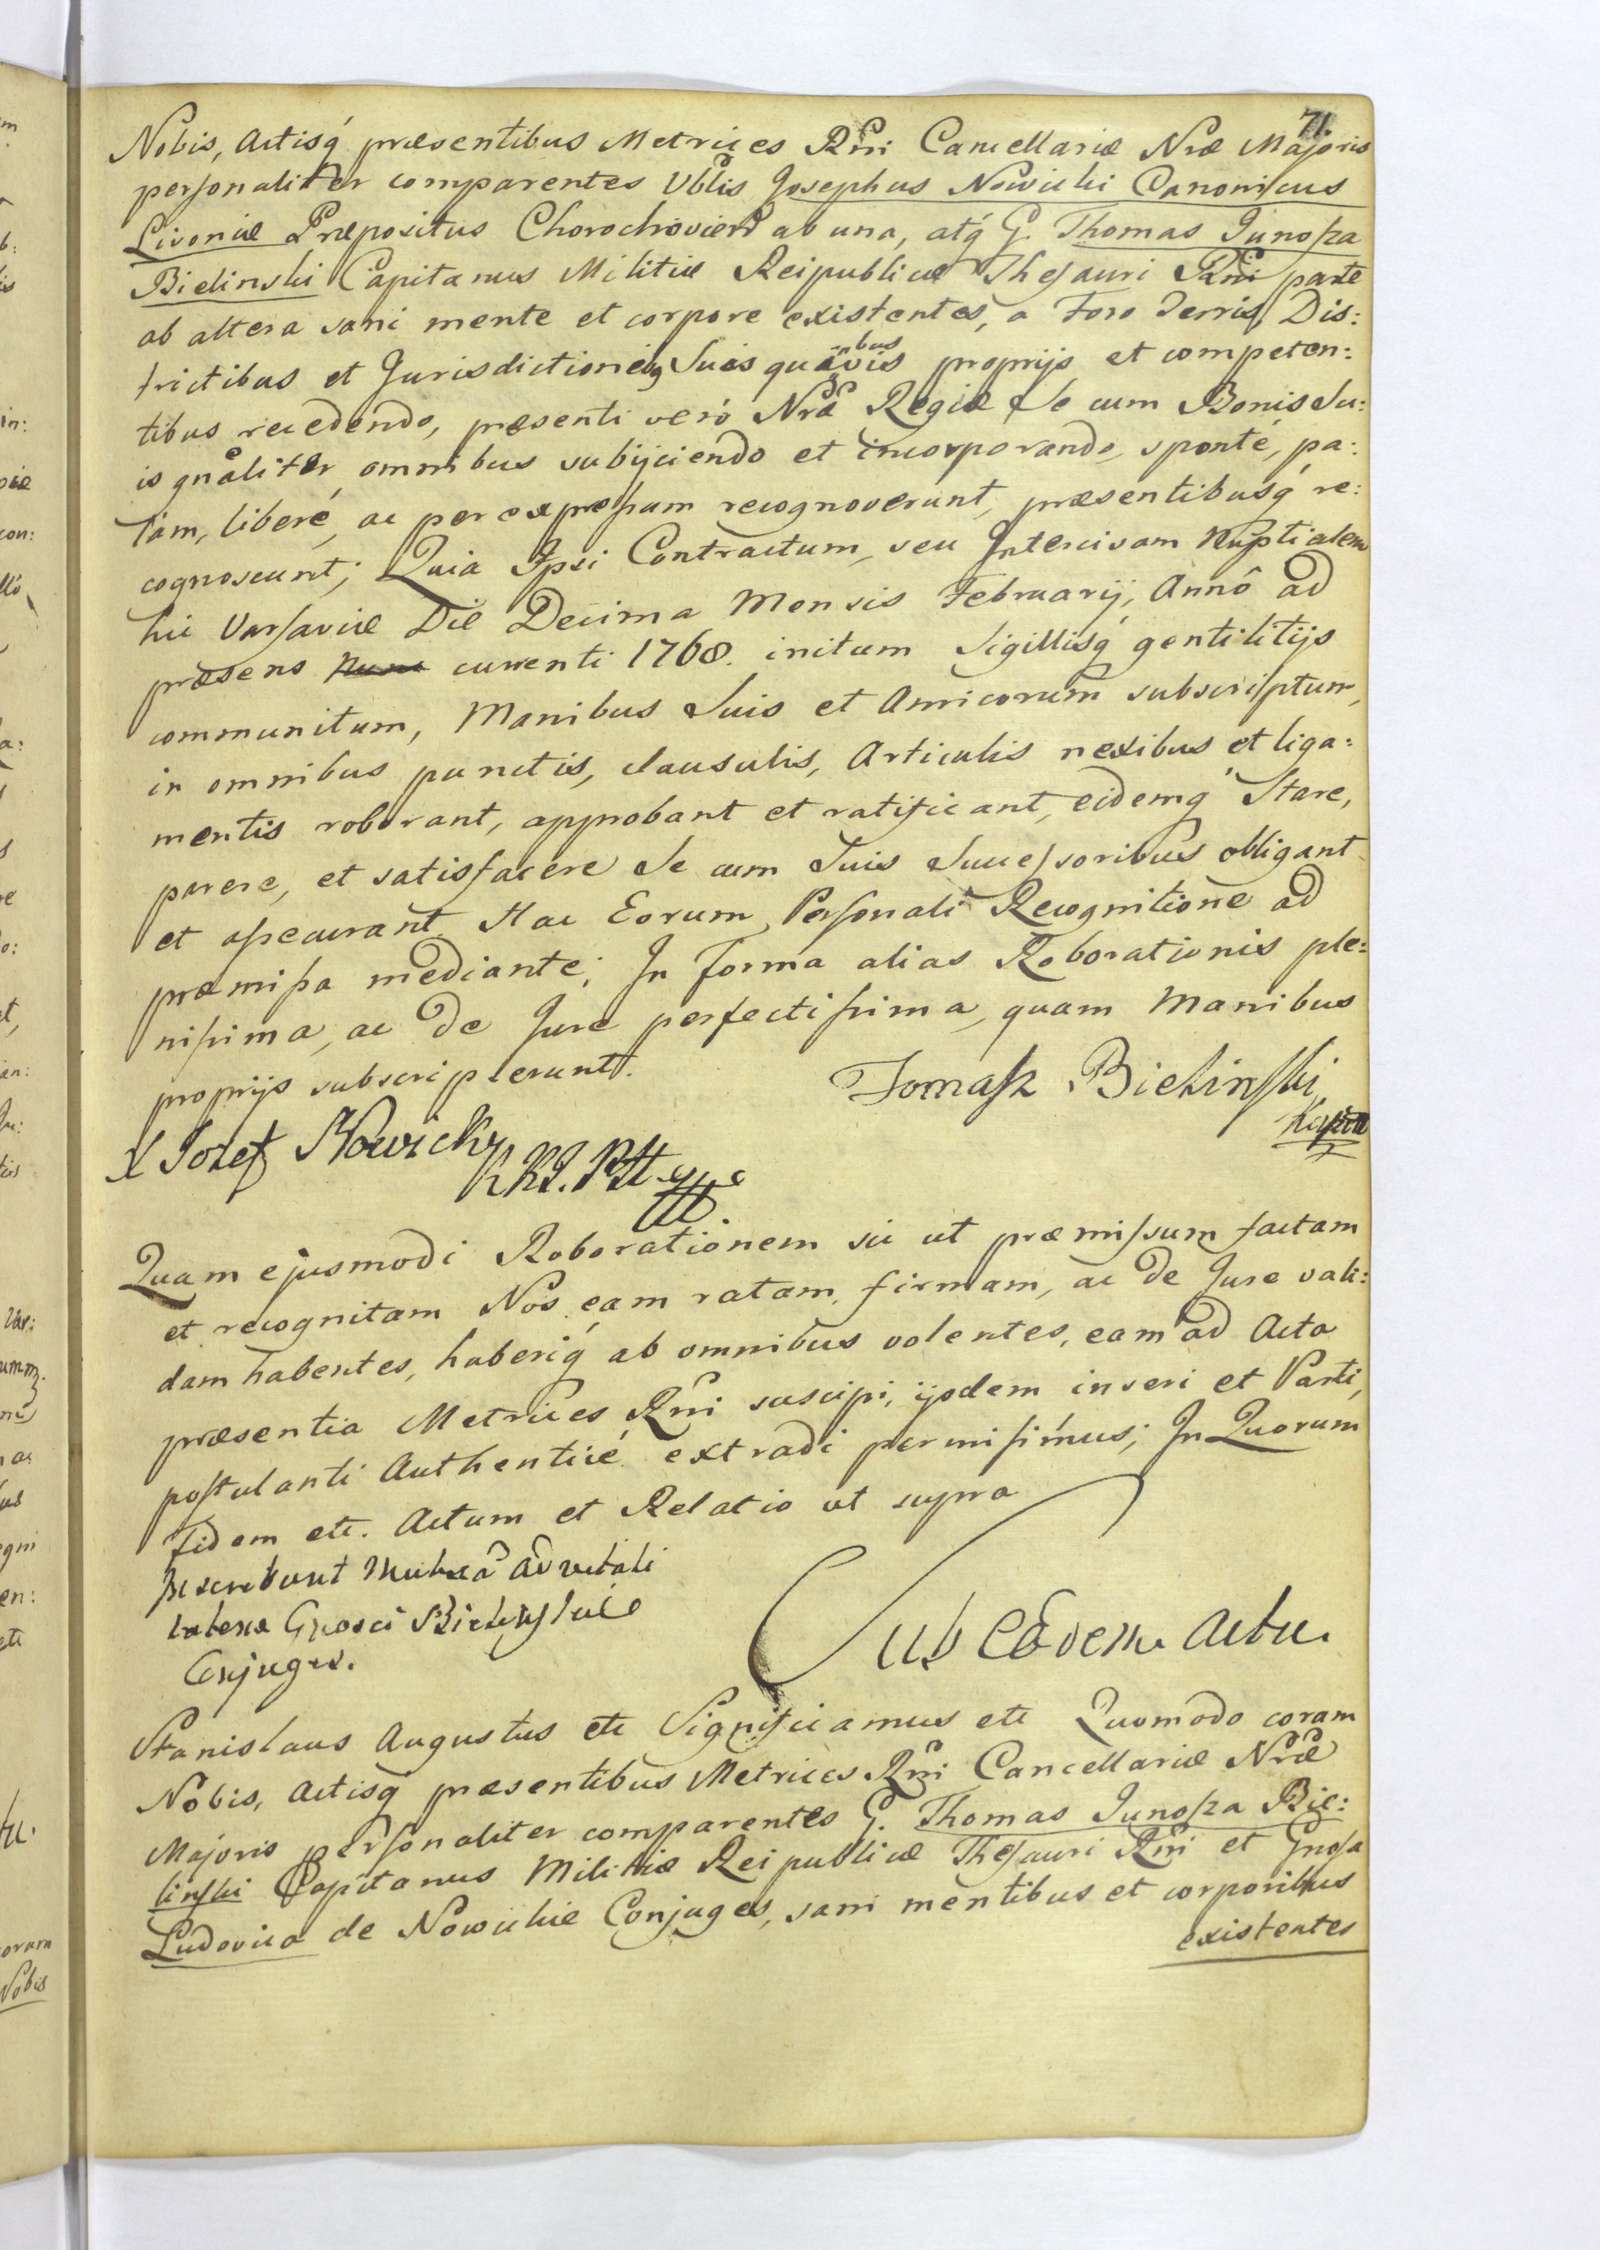 71.
Nobis, Actisq́ præsentibus Metrices Rñi Cancellariæ Nræ Majoris
personaliter comparentes Vblis Josephus Nowicki Canonicus
Livoniæ Præpositus Chorochoviens ab una, atq́ G. Thomas Junosza
Bielinski Capitanus Militiæ Reipublicæ Thesauri Rñi parte
ab altera sani mente et corpore existentes, a Foro Terris, Dis:
trictibus et Jurisdictionibq Suis quibusvis proprijs et competen:
tibus recedendo, præsenti verò Nræ Regiæ Se cum Bonis Su:
is gnaliter omnibus subijciendo et incorporando, sponté, pa:
lam, liberé, ac per expressum recognoverunt, præsentibusq́ re:
cognoscunt; Quia Ipsi Contractum, seu Intercisam Nuptialem
hic Varsaviæ Die Decima Mensis Februarij, Annô ad
præsens currenti 1768. initum Sigillisq́ gentilitijs
communitum, Manibus Suis et Amicorum subscriptum,
in omnibus punctis, clausulis, Articulis nexibus et liga:
mentis roborant, approbant et ratificant, eidemq́ Stare,
parere, et satisfacere Se cum Suis Successoribus obligant
et assecurant Hac Eorum Personali Recognitione ad
præmissa mediante; In Forma alias Roborationis ple:
nissima, ac de Jure perfectissima, quam Manibus
proprijs subscripserunt.
Tomasz Bielinski
X Jozef Nowicki
Quam ejusmodi Roborationem sic ut præmissum factam
et recognitam Nos eam ratam, firmam, ac de Jure vali:
dam habentes, haberiq́ ab omnibus volentes, eam ad Acta
præsentia Metrices Rñi suscipi, ijsdem inseri et Parti,
postulanti Authenticé extradi permisimus; In Quorum
Fidem etc. Actum et Relatio ut supra
Inscribunt Mutua advitali
Gnosi Bielinskie
Conjuges.
Sub Eodem Actu.
Stanislaus Augustus etc Significamus etc Quomodo coram
Nobis, Actisq́ præsentibus Metrices Rñi Cancellariæ Nræ
Majoris personaliter comparentes G. Thomas Junosza Bie:
linski Capitanus Militiæ Reipublicæ Thesauri Rñi et Gnosa
Ludovica de Nowickie Conjuges, sani mentibus et corporibus
existentes